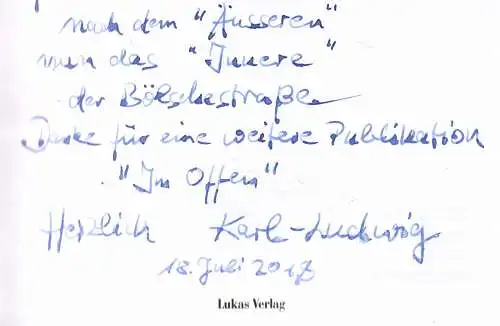 nach dem "Äusseren"
nun das "Innere"
der Bölschestraße
Danke für eine weitere Publikation
"Im Offen"
Herzlich Karl-Ludwig
18. Juli 2017
Lukas Verlag